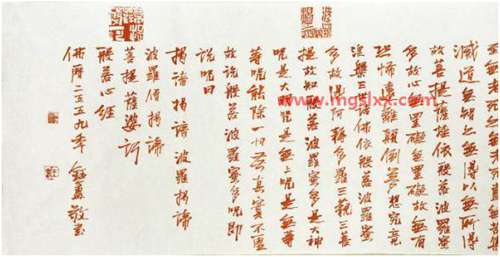 滅道無智亦無得以無所得
故菩提薩埵依般若波羅蜜
多故心無罣礙無罣礙故無有
恐怖遠離顛倒夢想究竟
涅槃三世諸佛依般若波羅蜜
多故得阿耨多羅三藐三菩
提故知般若波羅蜜多是大神
呪是大明呪是無上呪是無等
等呪能除一切苦真實不虛
故說般若波羅蜜多呪即
說呪曰
揭諦揭諦 波羅揭諦
波羅僧揭諦
菩提薩婆訶
般若心經
佛曆二五五九年 敬書
www.mgslxx.com